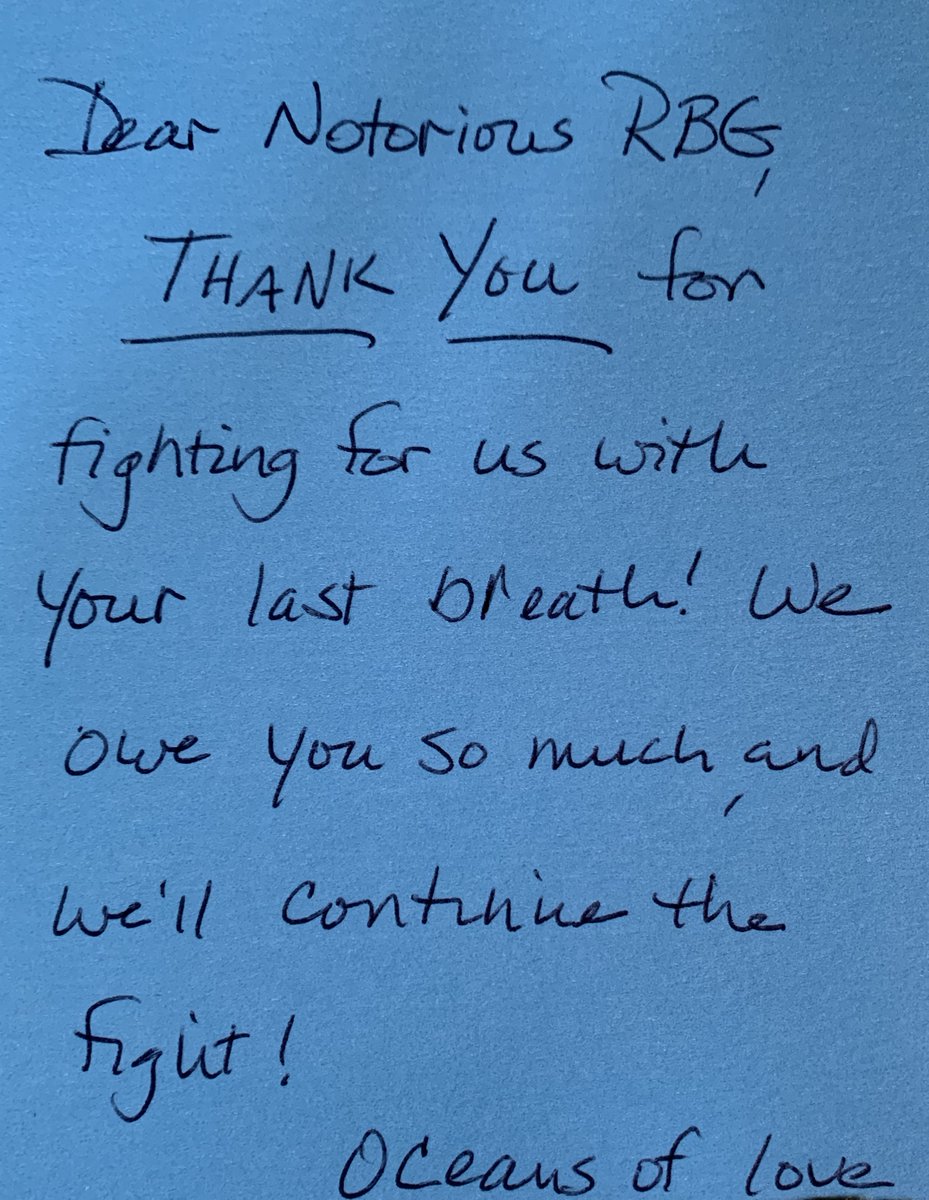 Dear Notorious RBG,
THANK You for
fighting for us with
your last breath! We
owe you so much, and
we'll continue the
fight!
Oceans of love